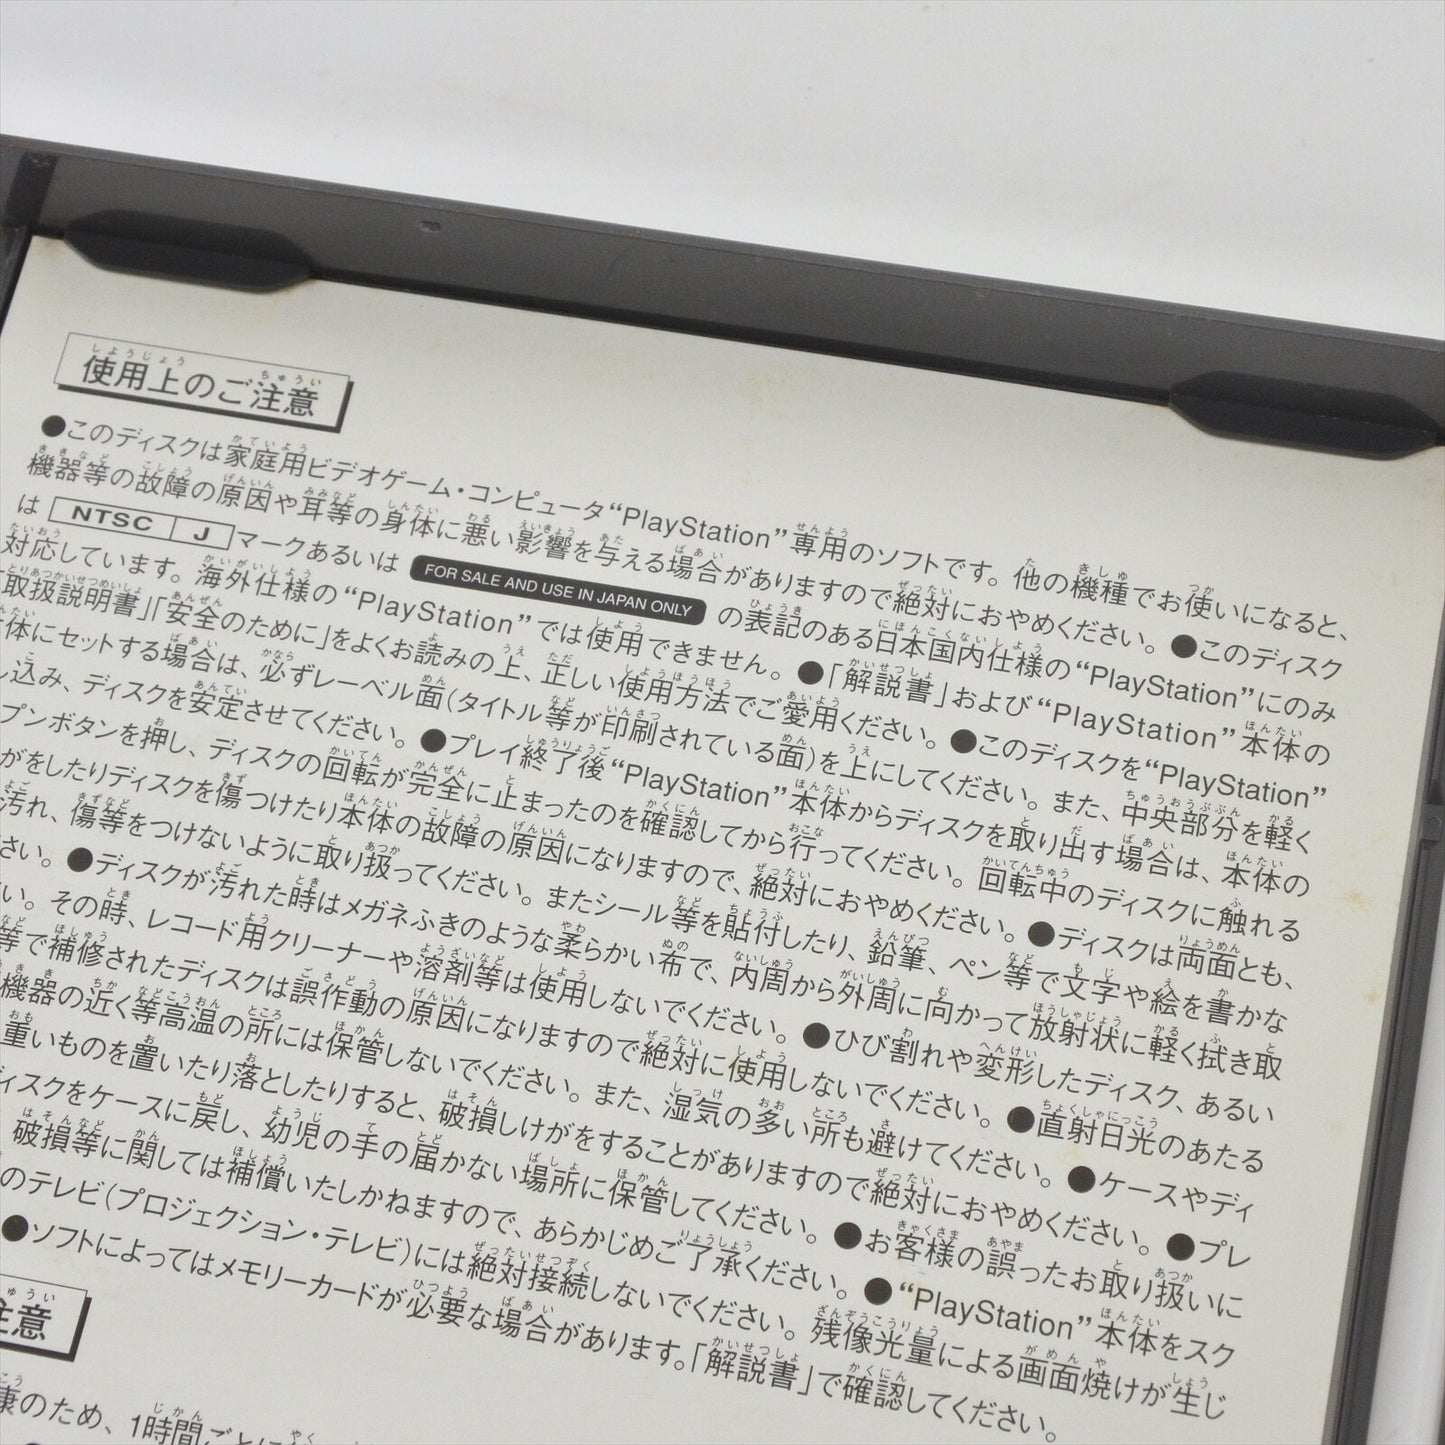 使用上のご注意
●このディスクは家庭用ビデオゲーム・コンピュータ“PlayStation”専用のソフトです。他の機種でお使いになると、
機器等の故障の原因や耳等の身体に悪い影響を与える場合がありますので絶対におやめください。●このディスク
は NTSC J マークあるいは FOR SALE AND USE IN JAPAN ONLY の表記のある日本国内仕様の“PlayStation”にのみ
対応しています。海外仕様の“PlayStation”では使用できません。●「解説書」および“PlayStation”本体の
取扱説明書」「安全のために」をよくお読みの上、正しい使用方法でご愛用ください。●このディスクを“PlayStation”
体にセットする場合は、必ずレーベル面(タイトル等が印刷されている面)を上にしてください。また、中央部分を軽く
し込み、ディスクを安定させてください。●プレイ終了後“PlayStation”本体からディスクを取り出す場合は、本体の
プンボタンを押し、ディスクの回転が完全に止まったのを確認してから行ってください。回転中のディスクに触れる
がをしたりディスクを傷つけたり本体の故障の原因になりますので、絶対におやめください。●ディスクは両面とも、
汚れ、傷等をつけないように取り扱ってください。またシール等を貼付したり、鉛筆、ペン等で文字や絵を書かな
さい。●ディスクが汚れた時はメガネふきのような柔らかい布で、内周から外周に向かって放射状に軽く拭き取
い。その時、レコード用クリーナーや溶剤等は使用しないでください。●ひび割れや変形したディスク、あるい
等で補修されたディスクは誤作動の原因になりますので絶対に使用しないでください。●直射日光のあたる
機器の近く等高温の所には保管しないでください。また、湿気の多い所も避けてください。●ケースやディ
重いものを置いたり落としたりすると、破損しけがをすることがありますので絶対におやめください。●プレ
ィスクをケースに戻し、幼児の手の届かない場所に保管してください。●お客様の誤ったお取り扱いに
破損等に関しては補償いたしかねますので、あらかじめご了承ください。●“PlayStation”本体をスク
のテレビ(プロジェクション・テレビ)には絶対接続しないでください。残像光量による画面焼けが生じ
●ソフトによってはメモリーカードが必要な場合があります。「解説書」で確認してください。
注意
康のため、1時間ごとに